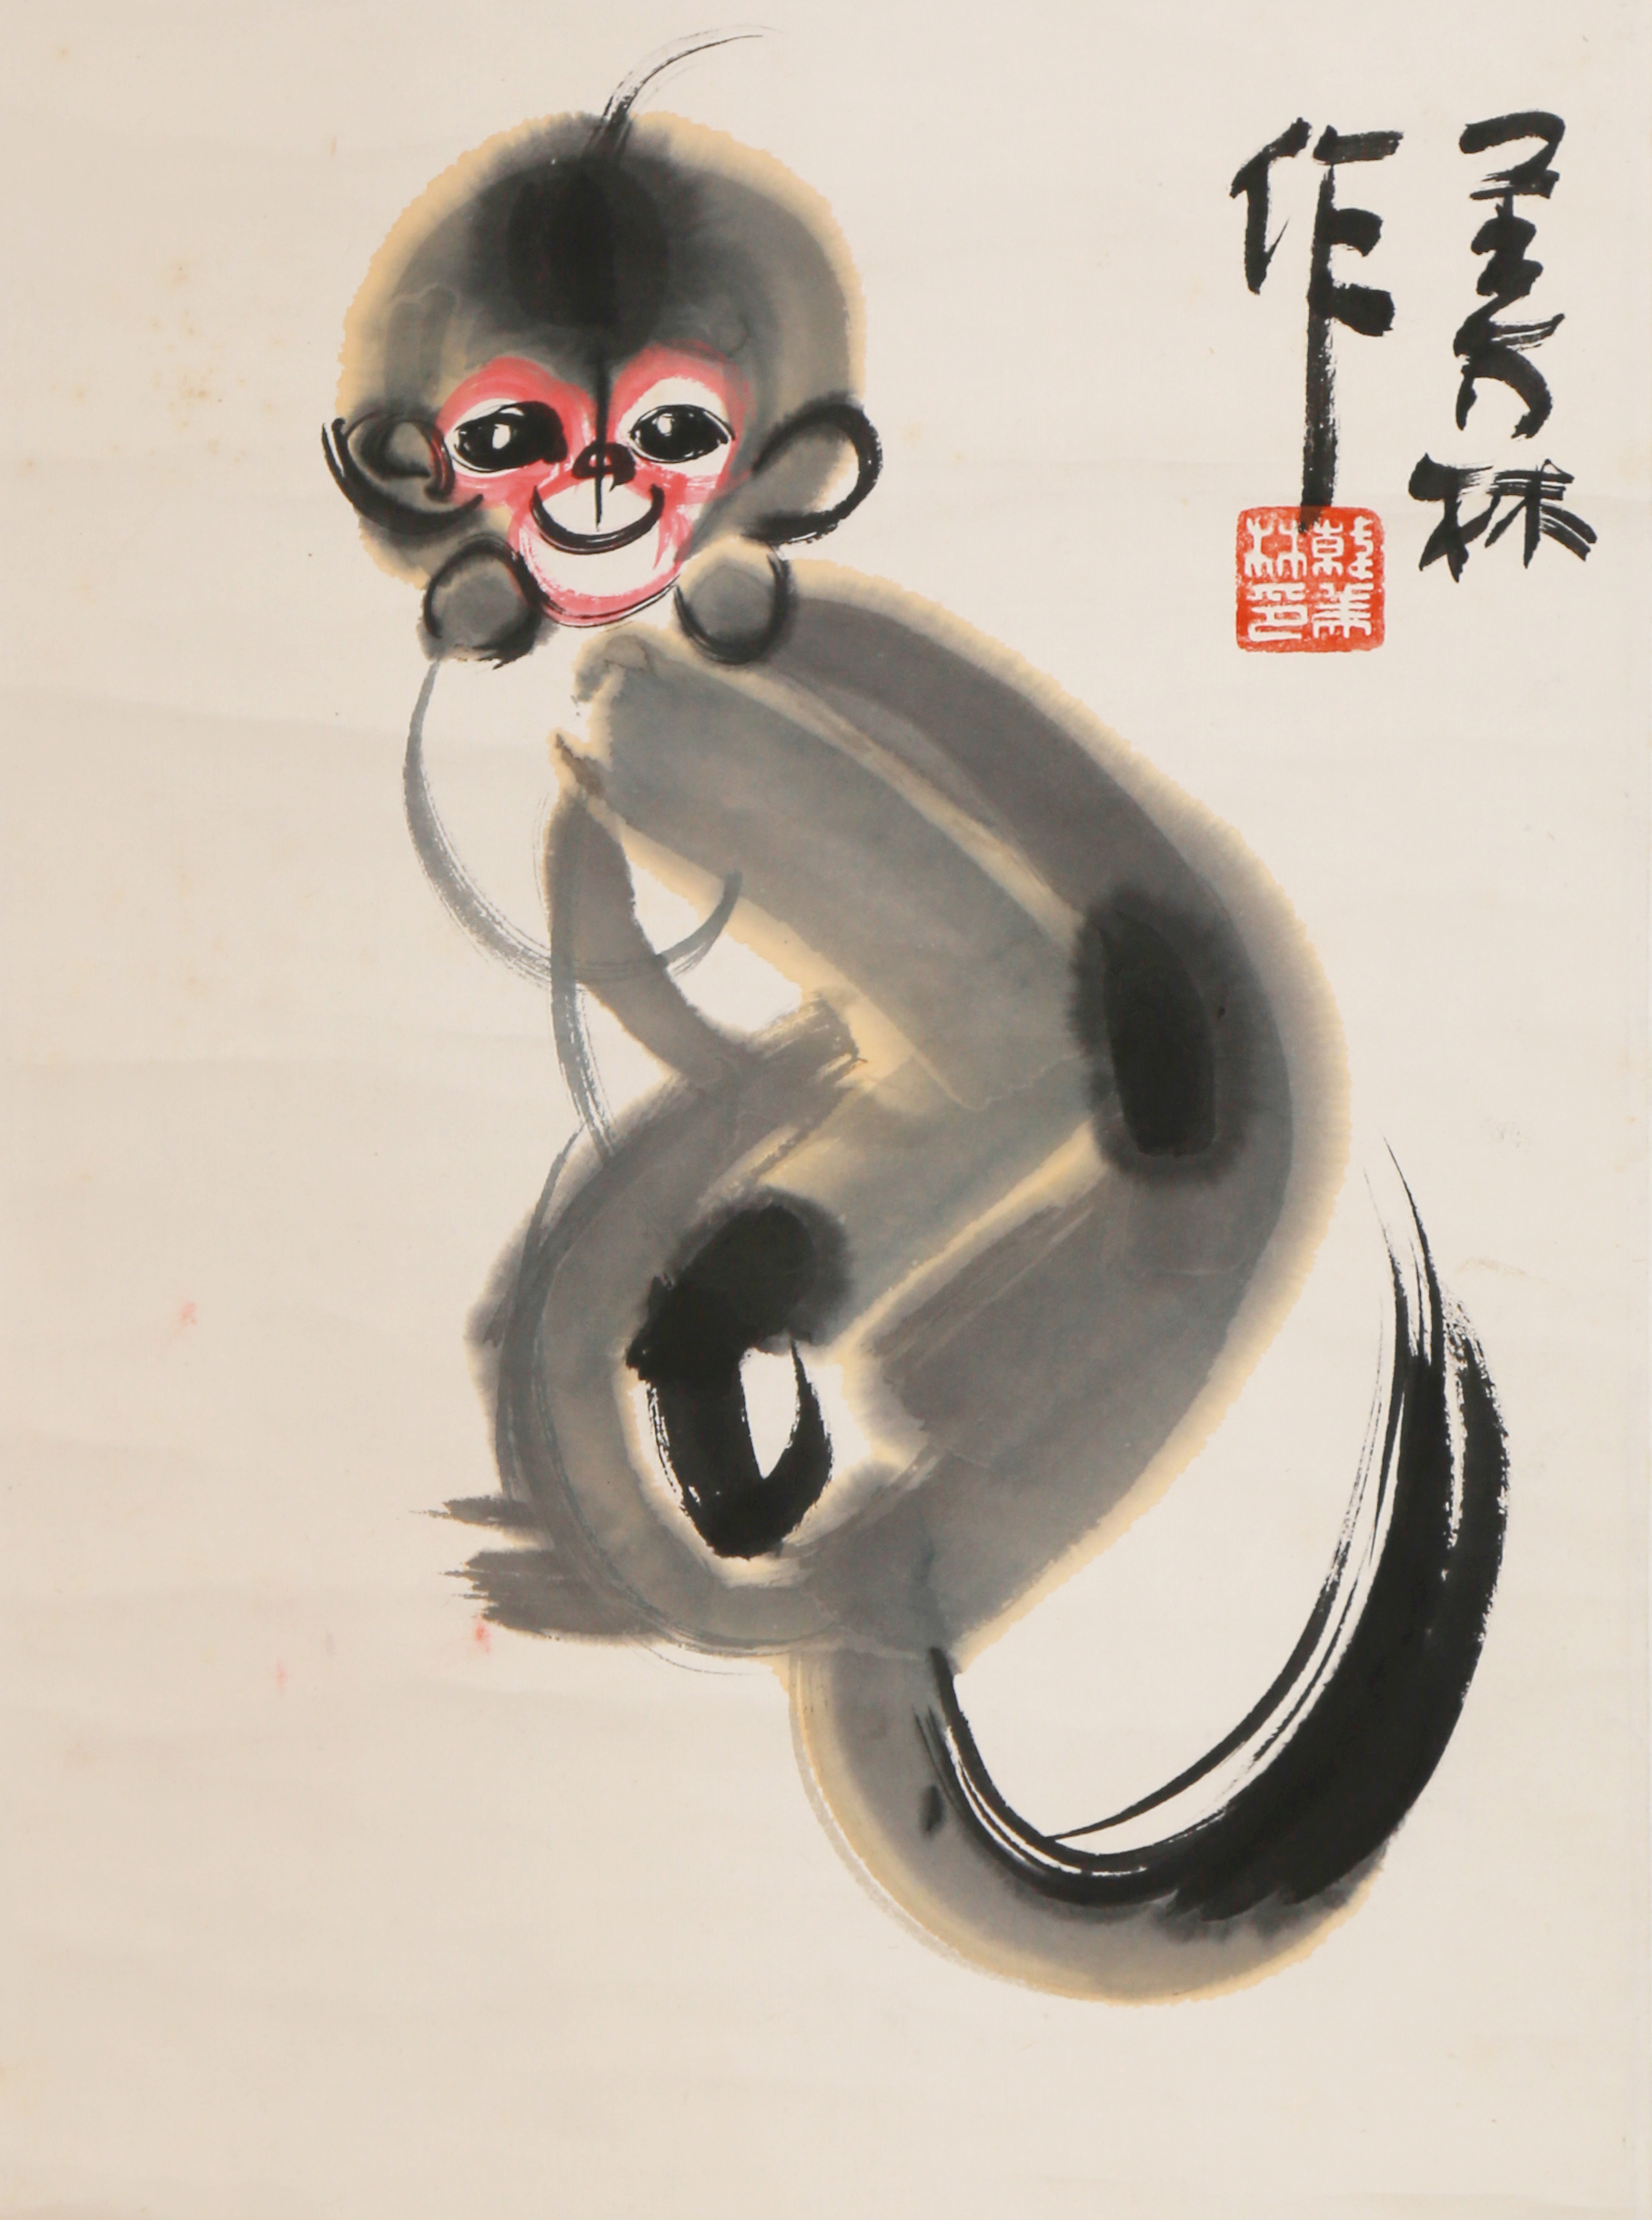 美林
作
韩美
林印